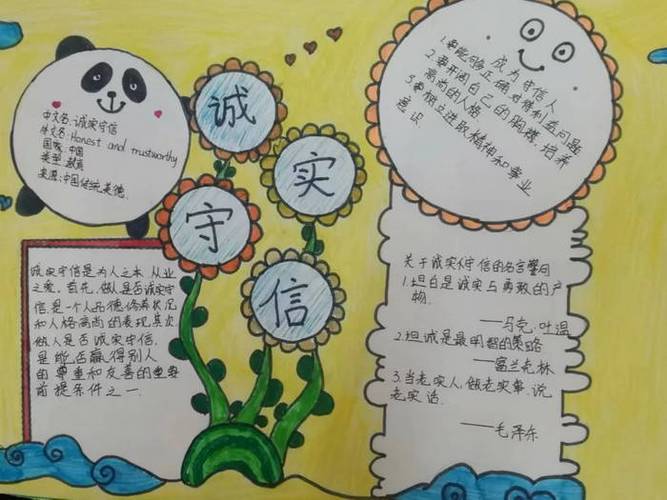 中文名:诚实守信
外文名:Honest and trustworthy
国家:中国
类型:教育
来源:中国传统美德.
诚
实
守
信
诚实守信是为人之本,从业
之要。首先,做人是否诚实守
信,是一个人品德修养状况
和人格高尚的表现.其次,
做人是否诚实守信,
是能否赢得别人
的尊重和友善的重要
前提条件之一.
成为守信人
1.要能够正确对待利益问题
2.要开阔自己的胸襟,培养
高尚的人格.
3.要树立进取精神和事业
意识
关于诚实守信的名言警句
1.坦白是诚实与勇敢的产
物.
——马克·吐温
2.坦诚是最明智的策略
——富兰克林
3.当老实人,做老实事,说
老实话.
——毛泽东